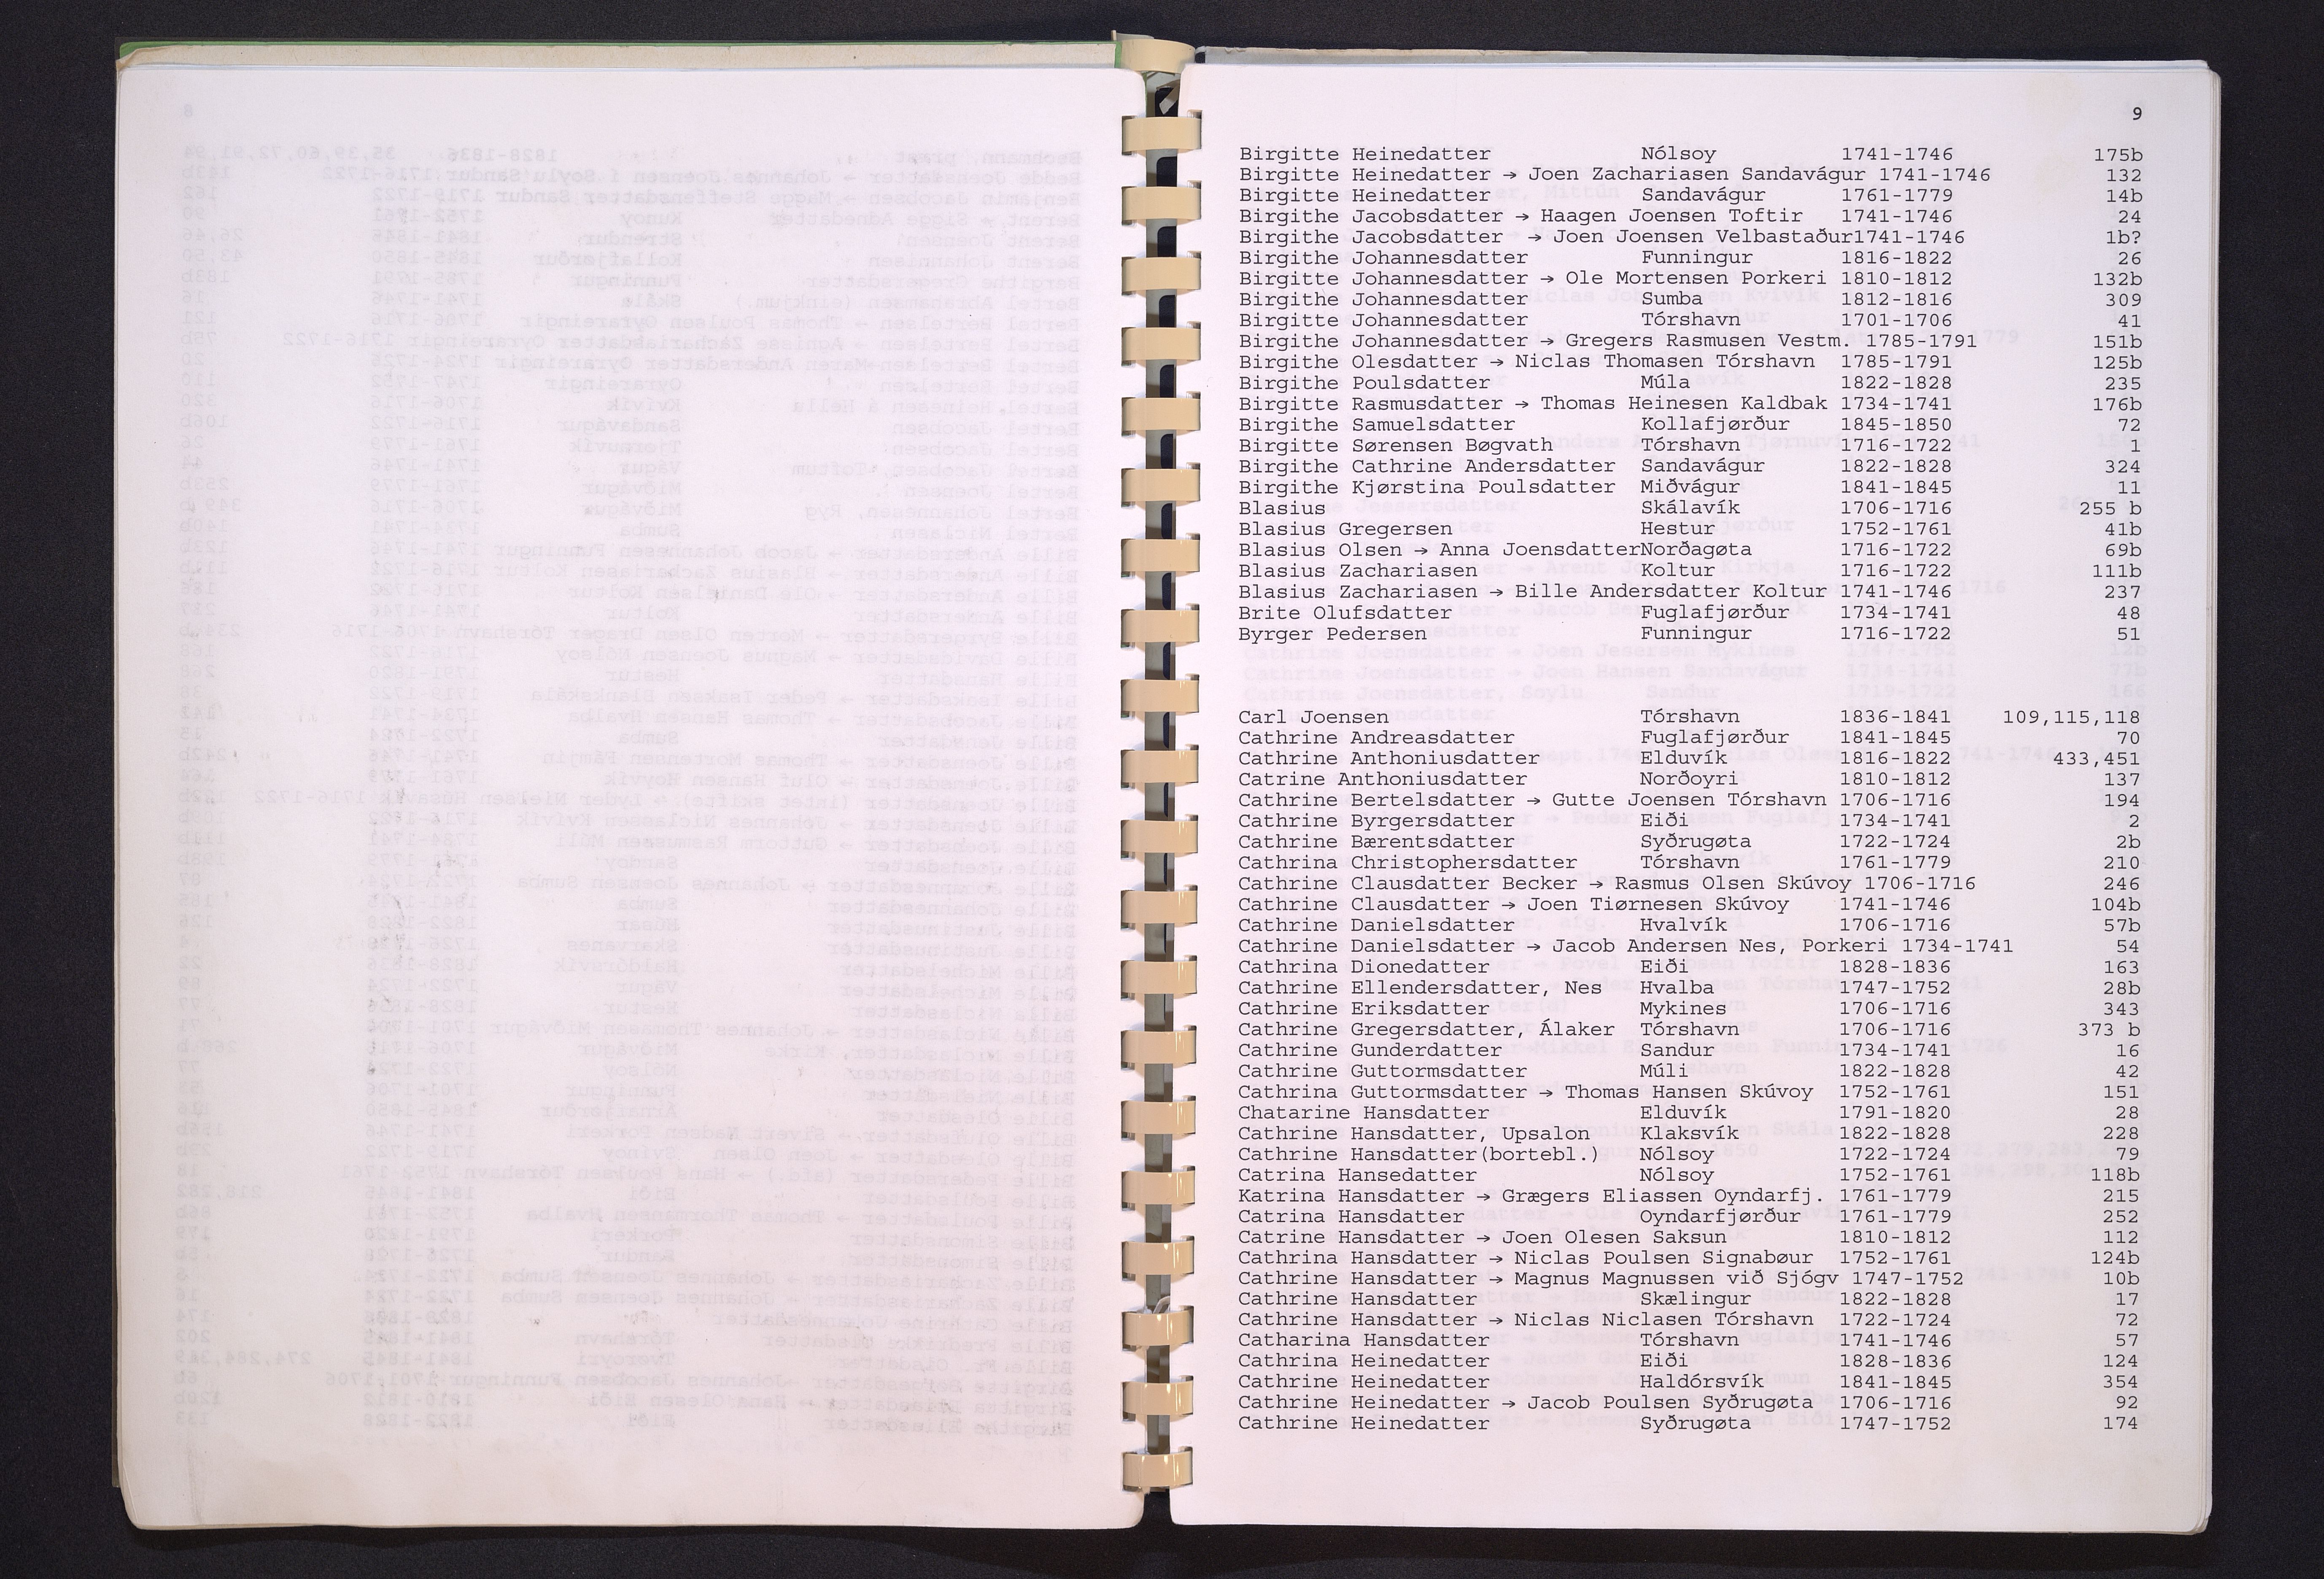 9
Birgitte Heinedatter Nólsoy 1741-1746 175b
Birgitte Heinedatter → Joen Zachariasen Sandavágur 1741-1746 132
Birgitte Heinedatter Sandavágur 1761-1779 14b
Birgithe Jacobsdatter → Haagen Joensen Toftir 1741-1746 24
Birgithe Jacobsdatter → Joen Joensen Velbastaður1741-1746 1b?
Birgithe Johannesdatter Funningur 1816-1822 26
Birgithe Johannesdatter → Ole Mortensen Porkeri 1810-1812 132b
Birgithe Johannesdatter Sumba 1812-1816 309
Birgithe Johannesdatter Tórshavn 1701-1706 41
Birgithe Johannesdatter → Gregers Rasmusen Vestm. 1785-1791 151b
Birgithe Olesdatter → Niclas Thomasen Tórshavn 1785-1791 125b
Birgithe Poulsdatter Múla 1822-1828 235
Birgitte Rasmusdatter → Thomas Heinesen Kaldbak 1734-1741 176b
Birgithe Samuelsdatter Kollafjørður 1845-1850 72
Birgitte Sørensen Bøgvath Tórshavn 1716-1722 1
Birgithe Cathrine Andersdatter Sandavágur 1822-1828 324
Birgithe Kjørstina Poulsdatter Miðvágur 1841-1845 11
Blasius Skálavík 1706-1716 255 b
Blasius Gregersen Hestur 1752-1761 41b
Blasius Olsen → Anna JoensdatterNorðagøta 1716-1722 69b
Blasius Zachariasen Koltur 1716-1722 111b
Blasius Zachariasen → Bille Andersdatter Koltur 1741-1746 237
Brite Olufsdatter Fuglafjørður 1734-1741 48
Byrger Pedersen Funningur 1716-1722 51
Carl Joensen Tórshavn 1836-1841 109,115,118
Cathrine Andreasdatter Fuglafjørður 1841-1845 70
Cathrine Anthoniusdatter Elduvík 1816-1822 433,451
Catrine Anthoniusdatter Norðoyri 1810-1812 137
Cathrine Bertelsdatter → Gutte Joensen Tórshavn 1706-1716 194
Cathrine Byrgersdatter Eiði 1734-1741 2
Cathrine Bærentsdatter Syðrugøta 1722-1724 2b
Cathrina Christophersdatter Tórshavn 1761-1779 210
Cathrine Clausdatter Becker → Rasmus Olsen Skúvoy 1706-1716 246
Cathrine Clausdatter → Joen Tiørnesen Skúvoy 1741-1746 104b
Cathrine Danielsdatter Hvalvík 1706-1716 57b
Cathrine Danielsdatter → Jacob Andersen Nes, Porkeri 1734-1741 54
Cathrina Dionedatter Eiði 1828-1836 163
Cathrine Ellendersdatter, Nes Hvalba 1747-1752 28b
Cathrine Eriksdatter Mykines 1706-1716 343
Cathrine Gregersdatter, Álaker Tórshavn 1706-1716 373 b
Cathrine Gunderdatter Sandur 1734-1741 16
Cathrine Guttormsdatter Múli 1822-1828 42
Cathrina Guttormsdatter → Thomas Hansen Skúvoy 1752-1761 151
Chatarine Hansdatter Elduvík 1791-1820 28
Cathrine Hansdatter, Upsalon Klaksvík 1822-1828 228
Cathrine Hansdatter(bortebl.) Nólsoy 1722-1724 79
Catrina Hansedatter Nólsoy 1752-1761 118b
Katrina Hansdatter → Grægers Eliassen Oyndarfj. 1761-1779 215
Catrina Hansdatter Oyndarfjørður 1761-1779 252
Catrine Hansdatter → Joen Olesen Saksun 1810-1812 112
Cathrina Hansdatter → Niclas Poulsen Signabøur 1752-1761 124b
Cathrine Hansdatter → Magnus Magnussen við Sjógv 1747-1752 10b
Cathrine Hansdatter Skælingur 1822-1828 17
Cathrine Hansdatter → Niclas Niclasen Tórshavn 1722-1724 72
Catharina Hansdatter Tórshavn 1741-1746 57
Cathrina Heinedatter Eiði 1828-1836 124
Cathrine Heinedatter Haldórsvík 1841-1845 354
Cathrine Heinedatter → Jacob Poulsen Syðrugøta 1706-1716 92
Cathrine Heinedatter Syðrugøta 1747-1752 174